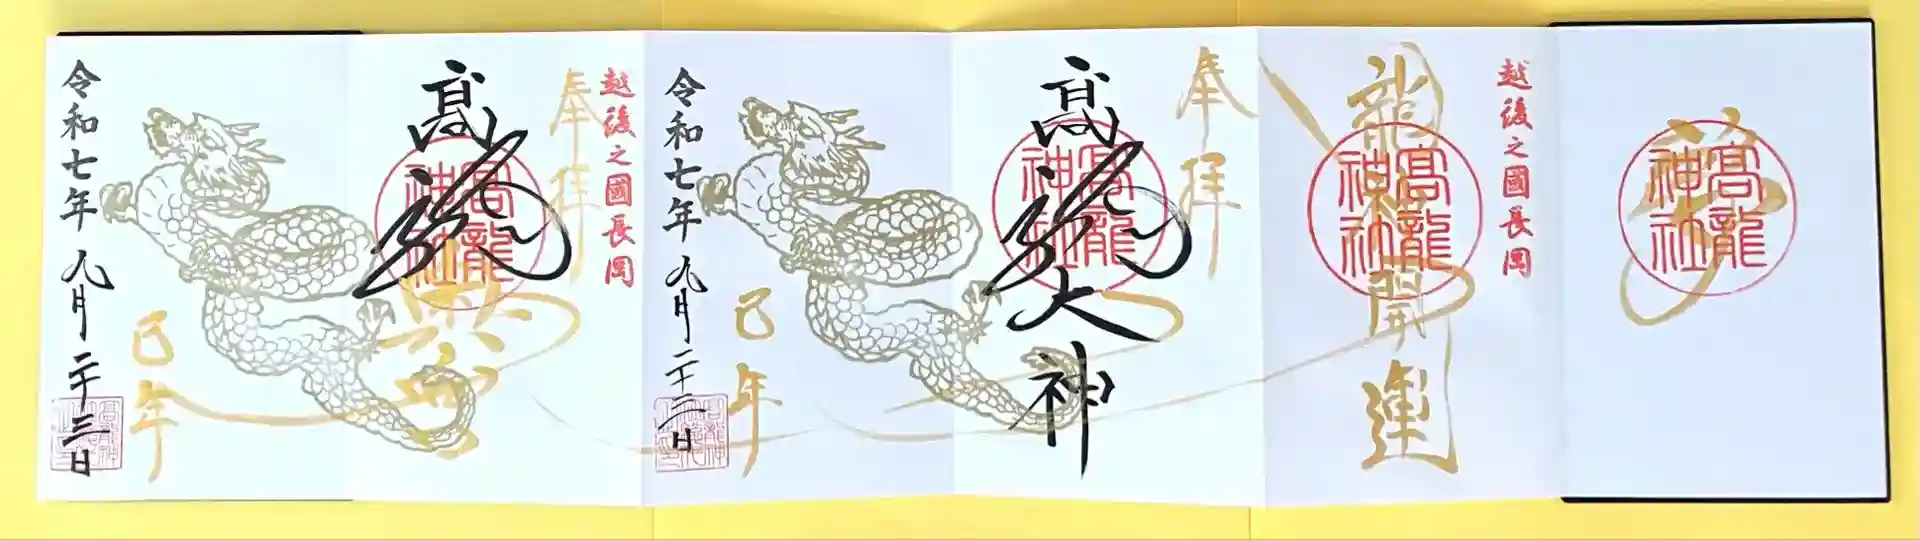 夢
髙龍神社
越後之國長岡
龍神開運
髙龍神社
奉拝
髙龍大神
髙龍神社
巳年
令和七年九月二十三日
越後之國長岡
奉拝
髙龍
髙龍神社
巳年
令和七年九月二十三日